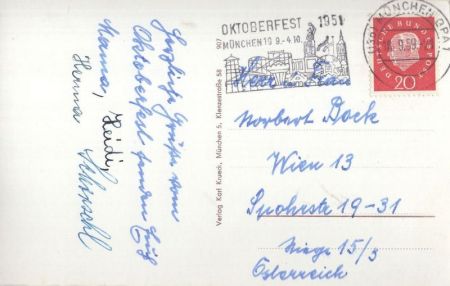 Herzliche Grüße vom
Oktoberfest senden Euch
Mama, Heidi,
Herma
907
Verlag Karl Krueck, München 5, Klenzestraße 58
OKTOBERFEST 1959
MÜNCHEN 19.9.-4.10.
MÜNCHEN
DEUTSCHE BUNDESPOST
20
Herr und Frau
Norbert Bock
Wien 13
Spohrstr 19-31
Stiege 15/3
Österreich